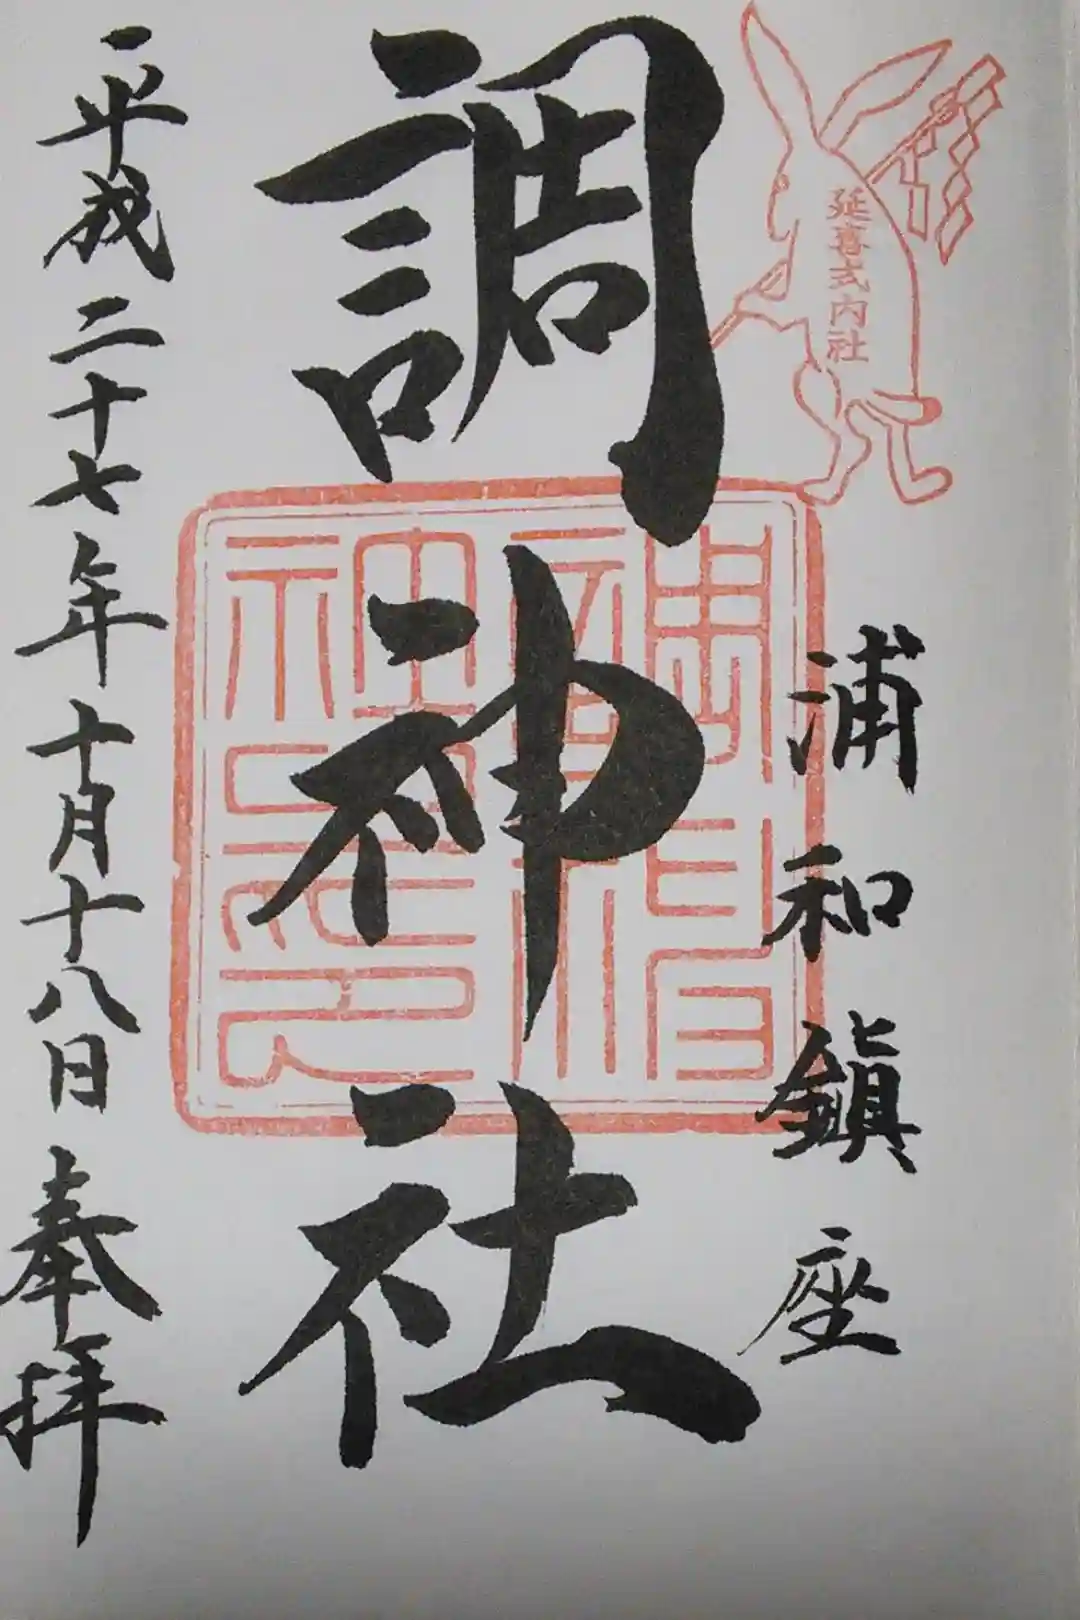 延喜式内社
浦和鎮座
調神社
平成二十七年十月十八日 奉拝